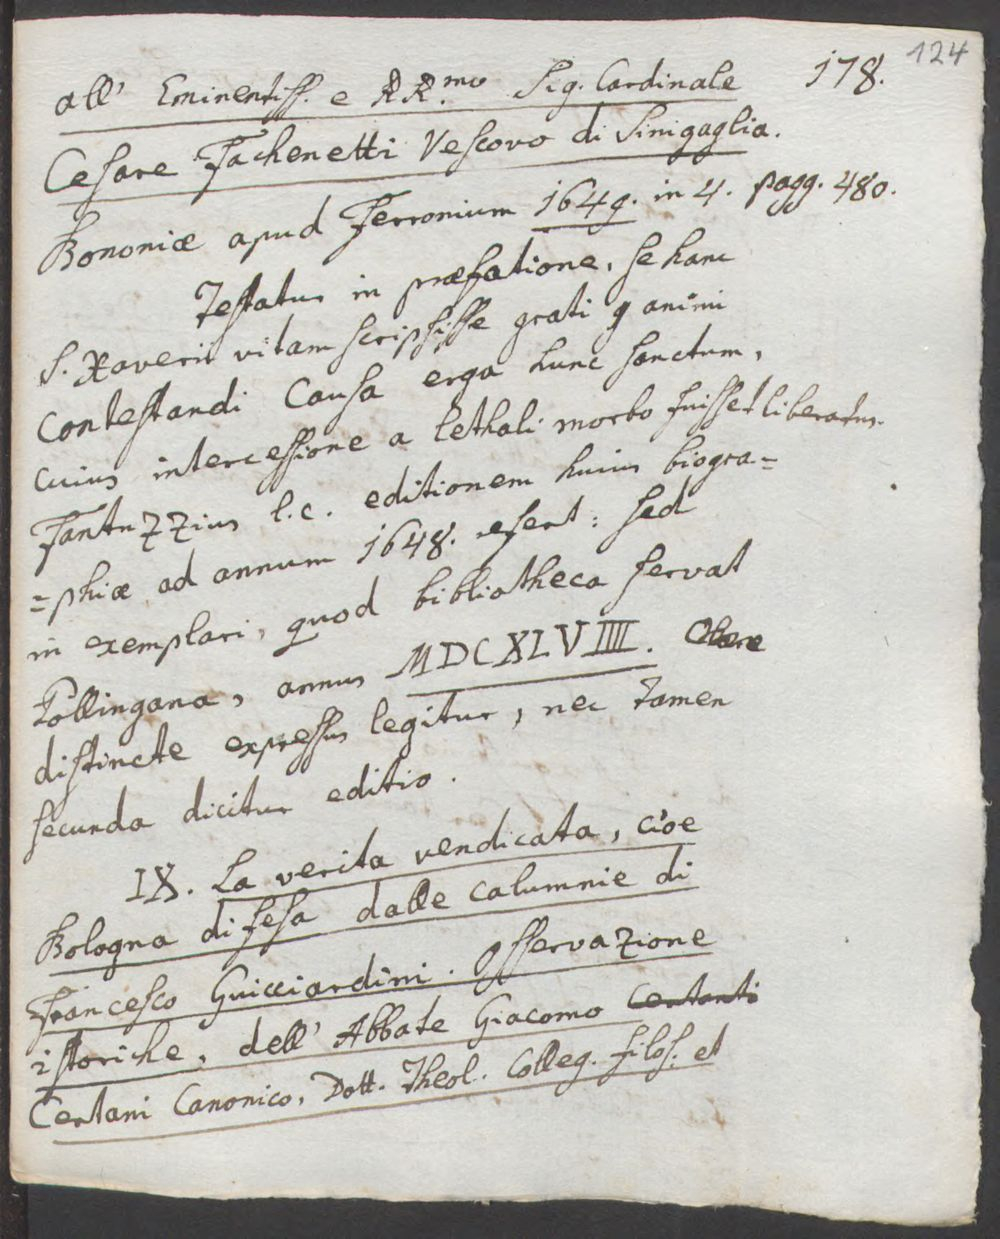 124
178.
all' Eminentiss. e RR.mo Sig. Cardinale
Cesare Fachenetti Vescovo di Sinigaglia.
Bononiæ apud Ferronium 1649. in 4. pagg. 480.
Testatur in præfatione, se hanc
S. Xaverii vitam scripsisse grati q animi
contestandi causa erga hunc sanctum,
cuius intercessione a lethali morbo fuisset liberatus.
Fantuzzius l.c. editionem huius biogra=
=phiæ ad annum 1648. refert: sed
in exemplari, quod bibliotheca servat
Pollingana, annus MDCXLVIIII. clare
distincte expressus legitur, nec tamen
secunda dicitur editio.
IX. La verita vendicata, cioe
Bologna difesa dalle calumnie di
Francesco Guicciardini. Osservazione
istoriche, dell' Abbate Giacomo Certanti
Certani Canonico, Dott. Theol. Colleg. filos. et